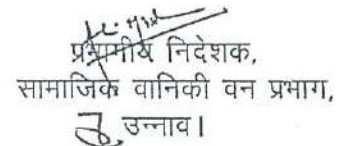 प्रभागीय निदेशक,
सामाजिक वानिकी वन प्रभाग,
उन्नाव।